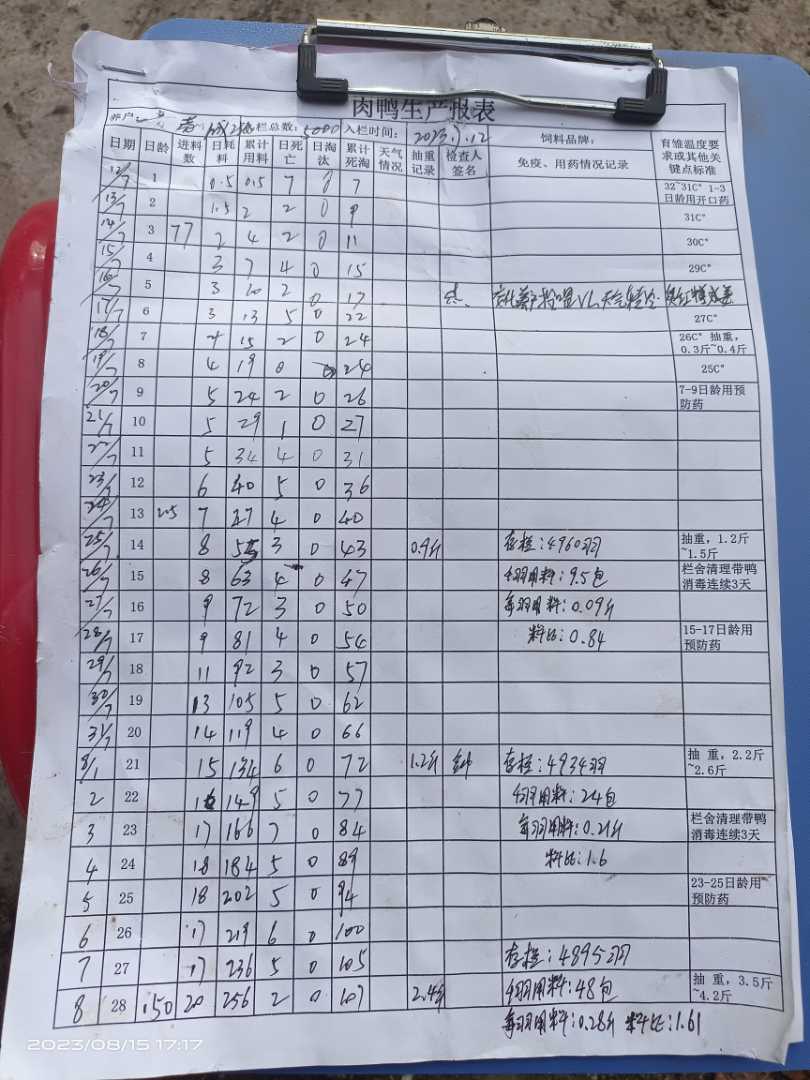 肉鸭生产报表
栏总数：5000 入栏时间：2023.7.12 饲料品牌：
日期 日龄 进料数 日耗料 累计用料 日死亡 日淘汰 累计死淘 天气情况 抽重记录 检查人签名 免疫、用药情况记录 育雏温度要求或其他关键点标准
12/7 1 0.5 0.5 7 0 7 32~31C° 1-3日龄用开口药
13/7 2 1.5 2 2 0 9 31C°
14/7 3 77 2 4 2 0 11 30C°
15/7 4 3 7 4 0 15 29C°
16/7 5 3 10 2 0 17
17/7 6 3 13 5 0 22 27C°
18/7 7 2 15 2 0 24 26C° 抽重，0.3斤~0.4斤
19/7 8 4 19 0 24 25C°
20/7 9 5 24 2 0 26 7-9日龄用预防药
21/7 10 5 29 1 0 27
22/7 11 5 34 4 0 31
23/7 12 6 40 5 0 36
24/7 13 205 7 47 4 0 40
25/7 14 8 55 3 0 43 0.9斤 存栏：4960羽 抽重，1.2斤~1.5斤
26/7 15 8 63 4 0 47 千羽用料：9.5包 栏舍清理带鸭消毒连续3天
27/7 16 9 72 3 0 50 每羽用料：0.09斤
28/7 17 9 81 4 0 54 料比：0.84 15-17日龄用预防药
29/7 18 11 92 3 0 57
30/7 19 13 105 5 0 62
31/7 20 14 119 4 0 66
8/1 21 15 134 6 0 72 1.2斤 存栏：4934羽 抽 重，2.2斤~2.6斤
2 22 149 5 0 77 千羽用料：24包
3 23 17 166 7 0 84 每羽用料：0.21斤 栏舍清理带鸭消毒连续3天
4 24 18 184 5 0 89 料比：1.6
5 25 18 202 5 0 94 23-25日龄用预防药
6 26 17 219 6 0 100
7 27 17 236 5 0 105 存栏：4895羽
8 28 150 20 256 2 0 107 2.4斤 千羽用料：48包 抽 重，3.5斤~4.2斤
每羽用料：0.28斤 料比：1.61
2023/08/15 17:17